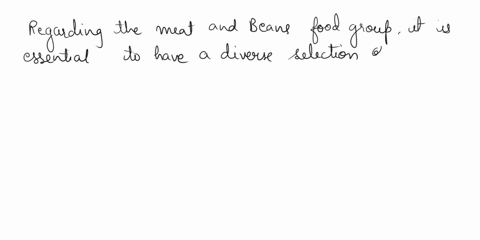 Regarding the meat and Beans food group, it is
essential to have a diverse selection